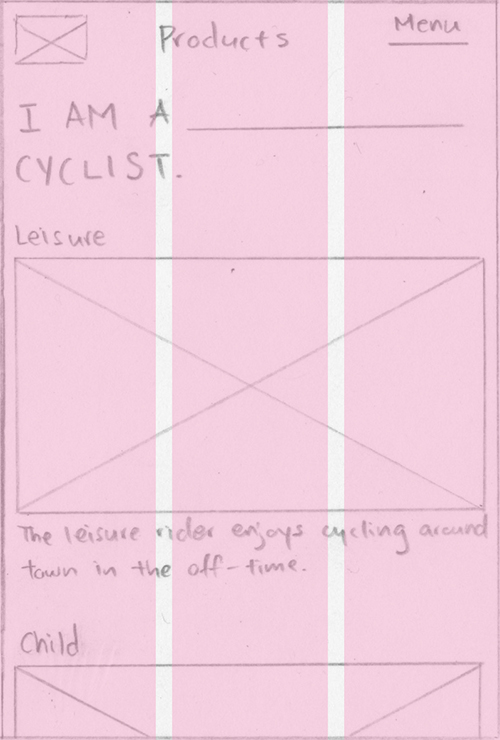 Products
Menu
I AM A
CYCLIST.
Leisure
The leisure rider enjoys cycling around
town in the off-time.
Child